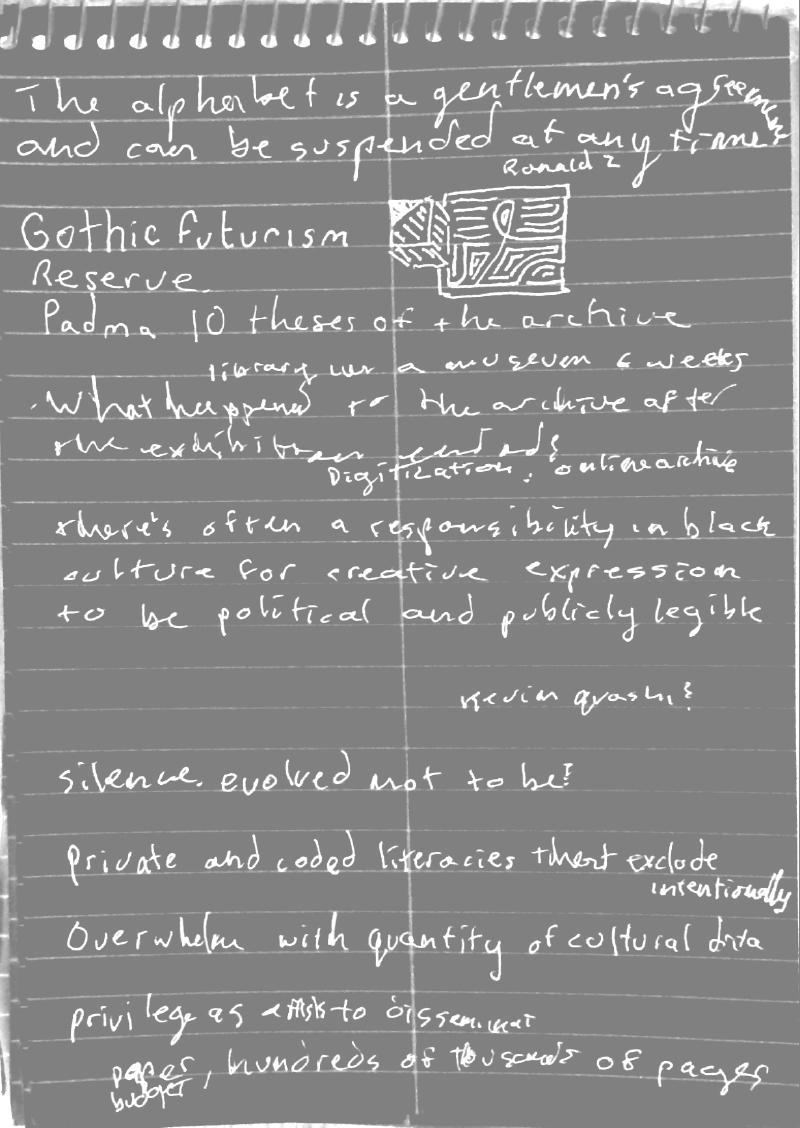 The alphabet is a gentlemen's agreement
and can be suspended at any time
Ronald 2
Gothic Futurism
Reserve.
Padma 10 theses of the archive
library a museum 6 weeks
What happened to the archive after
the exhibition
Digitization, online archive
there's often a responsibility in black
culture for creative expression
to be political and publicly legible
Kevin quashi?
silence. evolved not to be?
private and coded literacies that exclude
intentionally
Overwhelm with quantity of cultural data
privilege as to
paper, hundreds of thousands of pages
budget